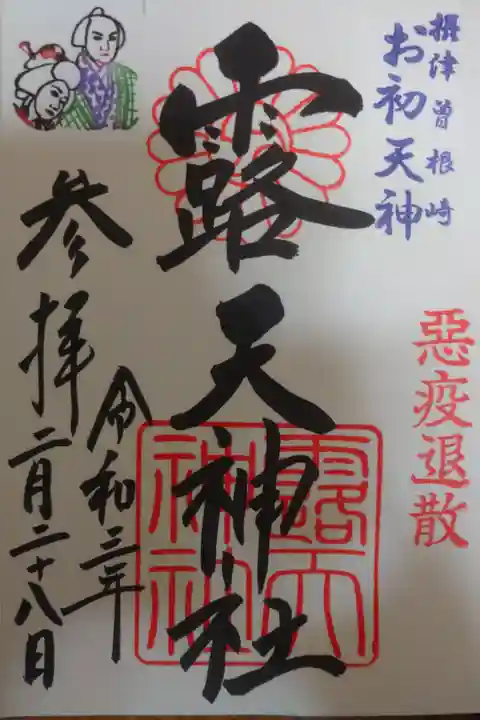 摂津曽根崎
お初天神
惡疫退散
露天神社
露天
神社
令和三年
参拝 二月二十八日